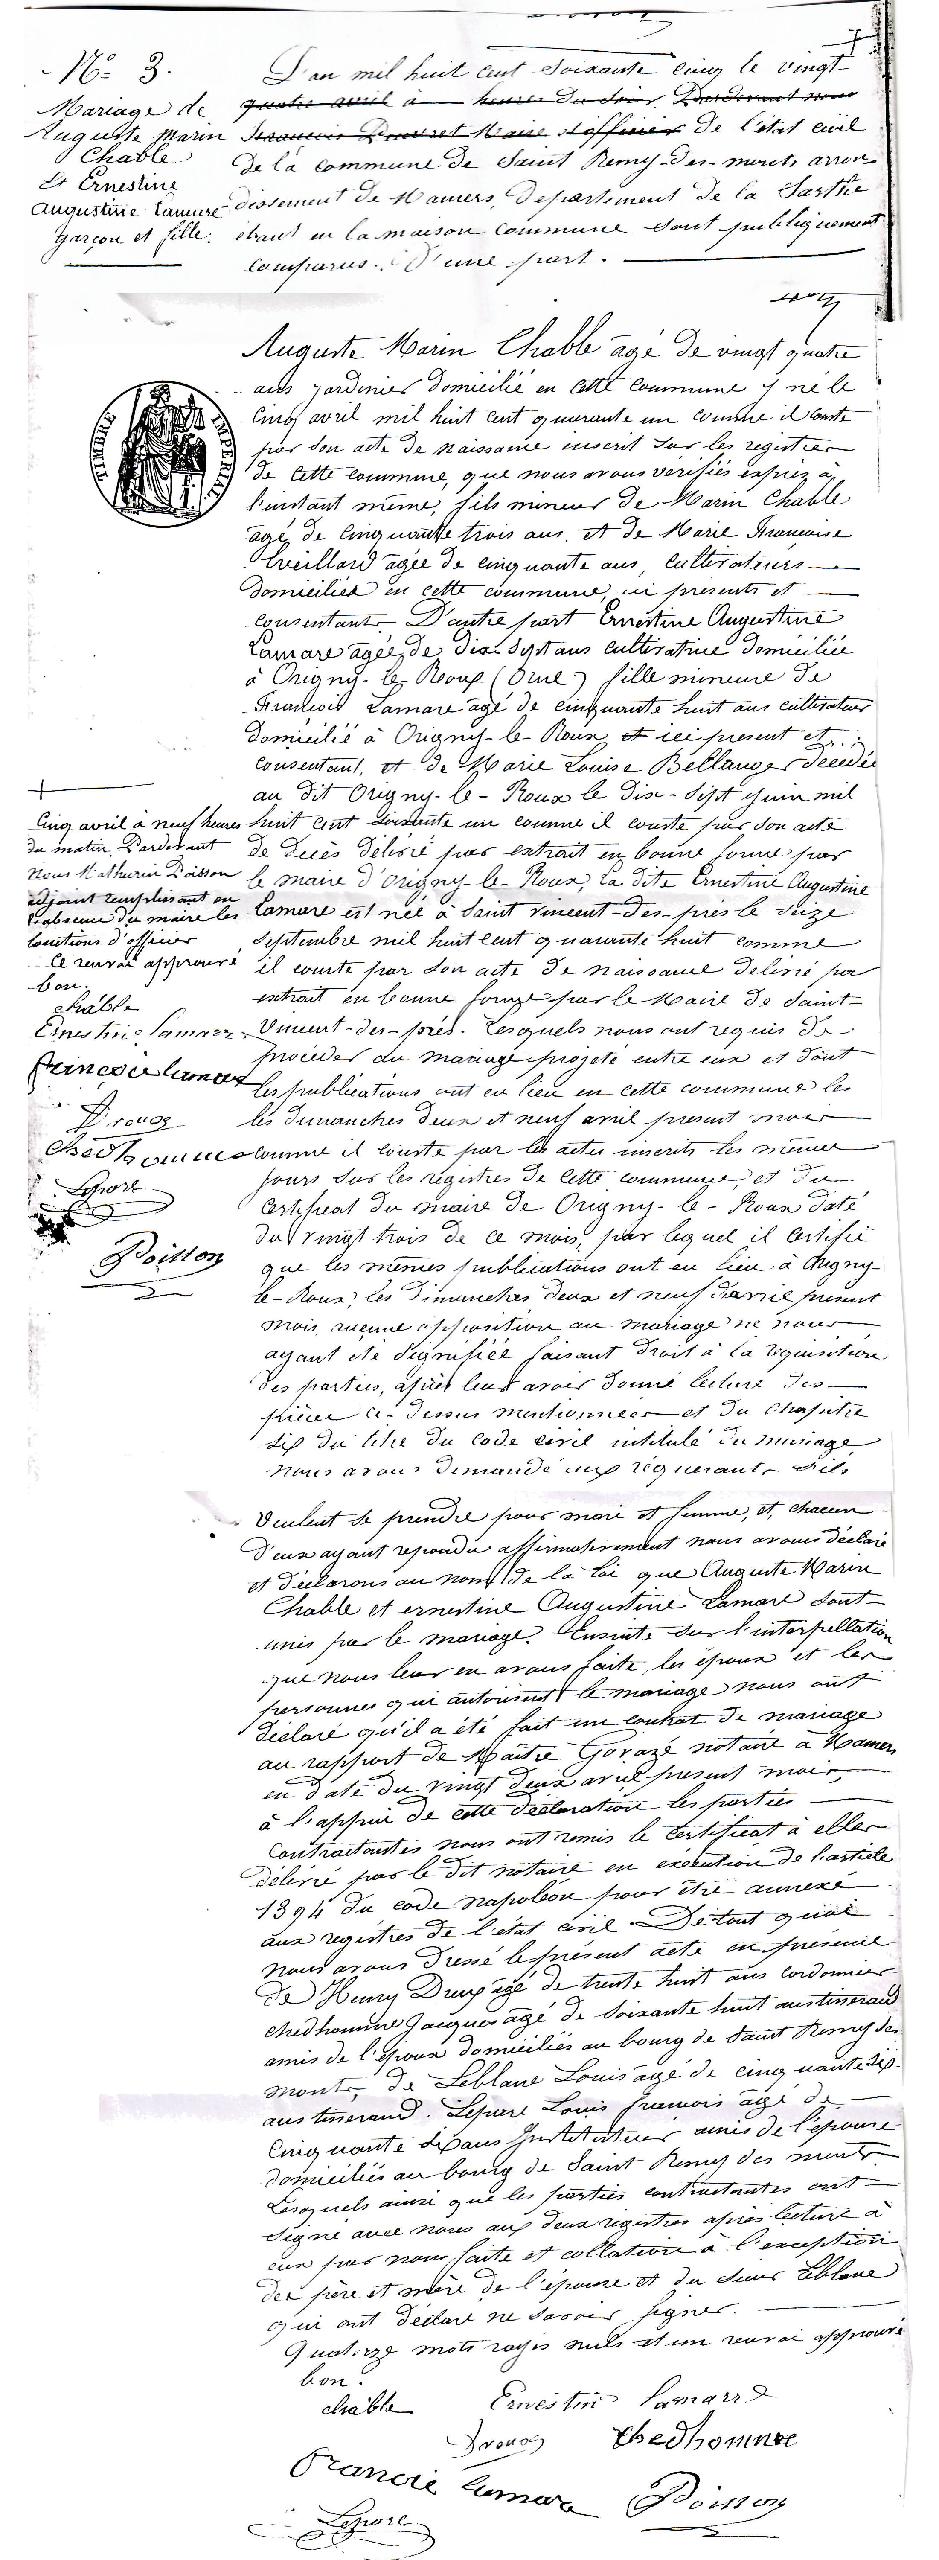 N° 3.
Mariage de
Auguste Marin
Chable
Et Ernestine
Augustine Lamare
garçon et fille.
L'an mil huit cent soixante cinq le vingt
quatre avril à heures du soir, Pardevant nous
Maire et officier de l'état civil
de la commune de Saint Remy-des-monts arron-
dissement de Mamers, Département de la Sarthe
étant en la maison commune sont publiquement
comparus. D'une part.
Auguste Marin Chable âgé de vingt quatre
ans jardinier domicilié en cette commune y né le
cinq avril mil huit cent quarante un comme il conste
par son acte de naissance inscrit sur les registres
de cette commune, que nous avons vérifiés exprès à
l'instant même, fils mineur de Marin Chable
âgé de cinquante trois ans, et de Marie Françoise
Treillard âgée de cinquante ans, cultivateurs
domiciliés en cette commune, ici présents et
consentants D'autre part Ernestine Augustine
Lamare âgée de dix-sept ans cultivatrice domiciliée
à Origny-le-Roux (Orne) fille mineure de
François Lamare âgé de cinquante huit ans cultivateur
domicilié à Origny-le-Roux et ici présent et
consentant, et de Marie Louise Bellanger décédée
au dit Origny-le-Roux le dix-sept juin mil
huit cent soixante un comme il conste par son acte
de décès délivré par extrait en bonne forme par
le maire d'Origny-le-Roux, la dite Ernestine Augustine
Lamare est née à Saint Vincent-des-prés le seize
septembre mil huit cent quarante huit comme
il conste par son acte de naissance délivré par
extrait en bonne forme par le Maire de Saint
Vincent-des-prés. Lesquels nous ont requis de
procéder au mariage projeté entre eux et dont
les publications ont eu lieu en cette commune les
les dimanches deux et neuf avril présent mois
comme il conste par les actes inscrits les mêmes
jours sur les registres de cette commune, et du
certificat du maire de Origny-le-Roux daté
du vingt trois de ce mois, par lequel il certifie
que les mêmes publications ont eu lieu à Origny
le-Roux, les Dimanches deux et neuf d'avril présent
mois, aucune opposition au mariage ne nous
ayant été signifiée faisant droit à la réquisition
des parties, après leur avoir donné lecture des
pièces ci-dessus mentionnées et du chapitre
six du titre du code civil intitulé du mariage
nous avons demandé aux requérants s'ils
cinq avril à neuf heures
du matin, Pardevant
Nous Mathurin Poisson
adjoint remplissant en
l'absence du maire les
fonctions d'officier
Ce renvoi approuvé
bon.
chable
Ernestine Lamare
francoie lamare
Droux
chedhomme
Lepore
Poisson
Veulent se prendre pour mari et femme, et, chacun
d'eux ayant répondu affirmativement nous avons déclaré
et déclarons au nom de la loi que Auguste Marin
Chable et ernestine Augustine Lamare sont
unis par le mariage. Ensuite sur l'interpellation
que nous leur en avons faite, les époux et les
personnes qui autorisent le mariage nous ont
déclaré qu'il a été fait un contrat de mariage
au rapport de Maître notaire à Mamers
en date du vingt deux avril présent mois,
à l'appui de cette déclaration les parties
contractantes nous ont remis le certificat à elles
délivré par le dit notaire en exécution de l'article
1394 du code napoléon pour être annexé
aux registres de l'état civil. De tout quoi
nous avons dressé le présent acte en présence
de Henry âgé de trente huit ans cordonnier
chedhomme Jacques âgé de soixante huit ans tisserand
amis de l'époux domiciliés au bourg de Saint Remy des
monts, de Leblanc Louis âgé de cinquante six
ans tisserand. Louis francois âgé de
cinquante six ans Instituteur amis de l'épouse
domiciliés au bourg de Saint Remy des monts
Lesquels ainsi que les parties contractantes ont
signé avec nous aux deux registres après lecture à
eux par nous faite et collation à l'exception
des père et mère de l'épouse et du sieur Leblanc
qui ont déclaré ne savoir signer.
Quatorze mots rayés nuls et un renvoi approuvé
bon.
chable Ernestine Lamarre
Droux Chedhomme
Francoie lamare Poisson
Lepore
TIMBRE IMPERIAL